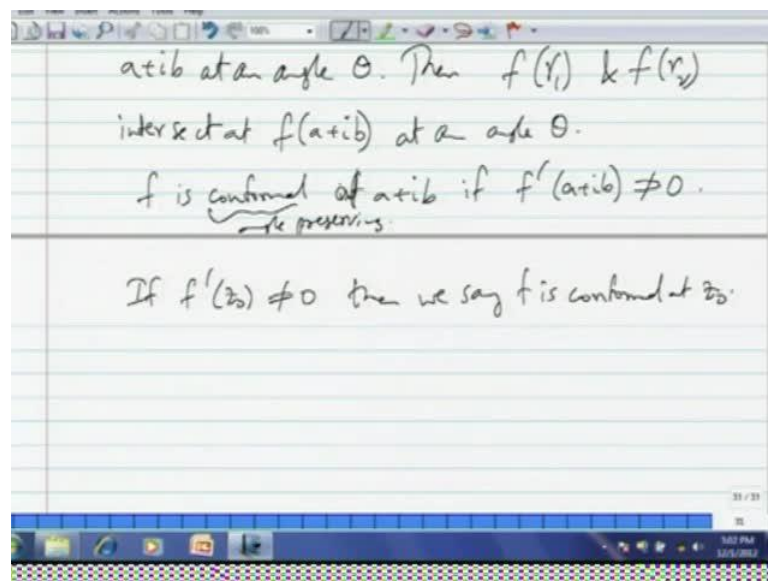 a+ib at an angle θ. Then f(γ₁) & f(γ₂)
intersect at f(a+ib) at an angle θ.
f is conformal at a+ib if f'(a+ib) ≠ 0.
angle preserving.
If f'(z₀) ≠ 0 then we say f is conformal at z₀.
31 / 31
31
5:02 PM
12/5/2012